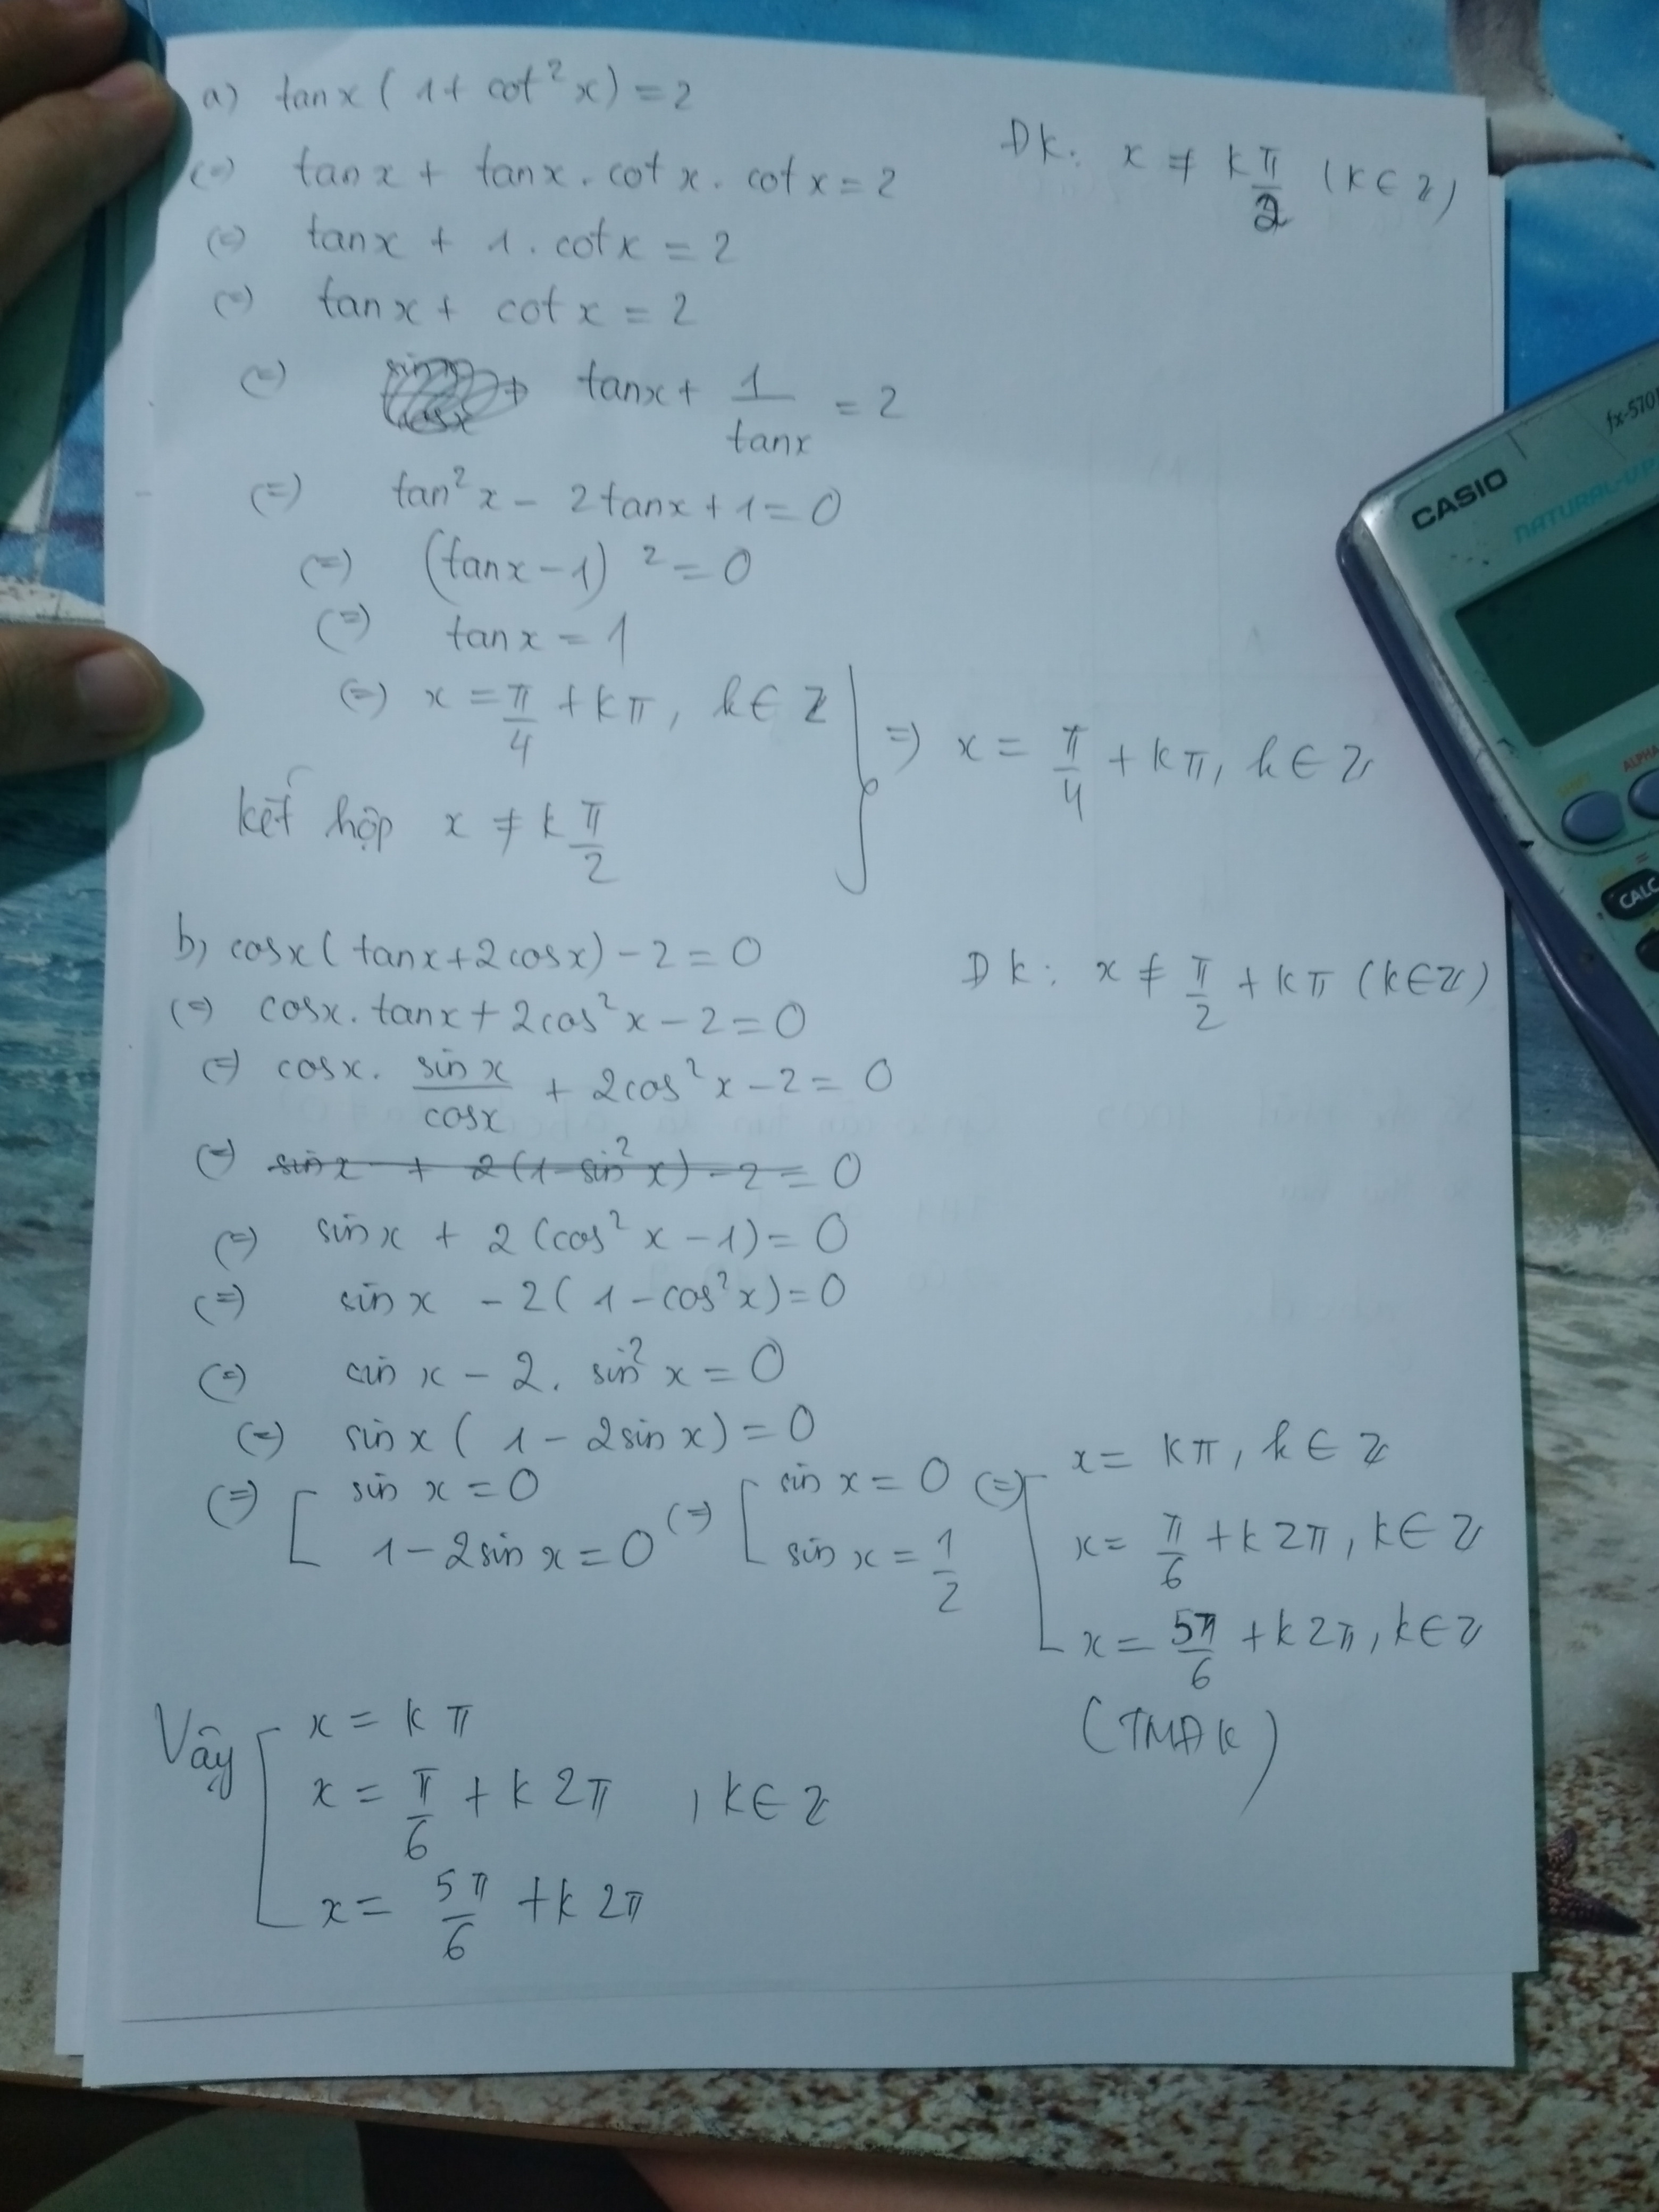 a) tanx ( 1 + cot²x ) = 2
Đk: x ≠ kπ/2 (k∈Z)
(=) tanx + tanx . cotx . cotx = 2
(=) tanx + 1 . cotx = 2
(=) tanx + cotx = 2
(=) tanx + 1/tanx = 2
(=) tan²x - 2tanx + 1 = 0
(=) (tanx - 1)² = 0
(=) tanx = 1
(=) x = π/4 + kπ, k∈Z
=) x = π/4 + kπ, k∈Z
kết hợp x ≠ kπ/2
b, cosx ( tanx + 2cosx) - 2 = 0
Đk: x ≠ π/2 + kπ (k∈Z)
(=) cosx . tanx + 2cos²x - 2 = 0
(=) cosx . sinx/cosx + 2cos²x - 2 = 0
(=) sinx + 2(1 - sin²x) - 2 = 0
(=) sinx + 2 (cos²x - 1) = 0
(=) sinx - 2( 1 - cos²x) = 0
(=) sinx - 2 . sin²x = 0
(=) sinx ( 1 - 2sinx) = 0
(=) [ sinx = 0
1 - 2sinx = 0
(=) [ sinx = 0
sinx = 1/2
(=) [ x = kπ, k∈Z
x = π/6 + k2π, k∈Z
x = 5π/6 + k2π, k∈Z
(TMĐK)
Vậy [ x = kπ
x = π/6 + k2π , k∈Z
x = 5π/6 + k2π
CASIO
fx-570
NATURAL-VP
SHIFT
ALPHA
CALC